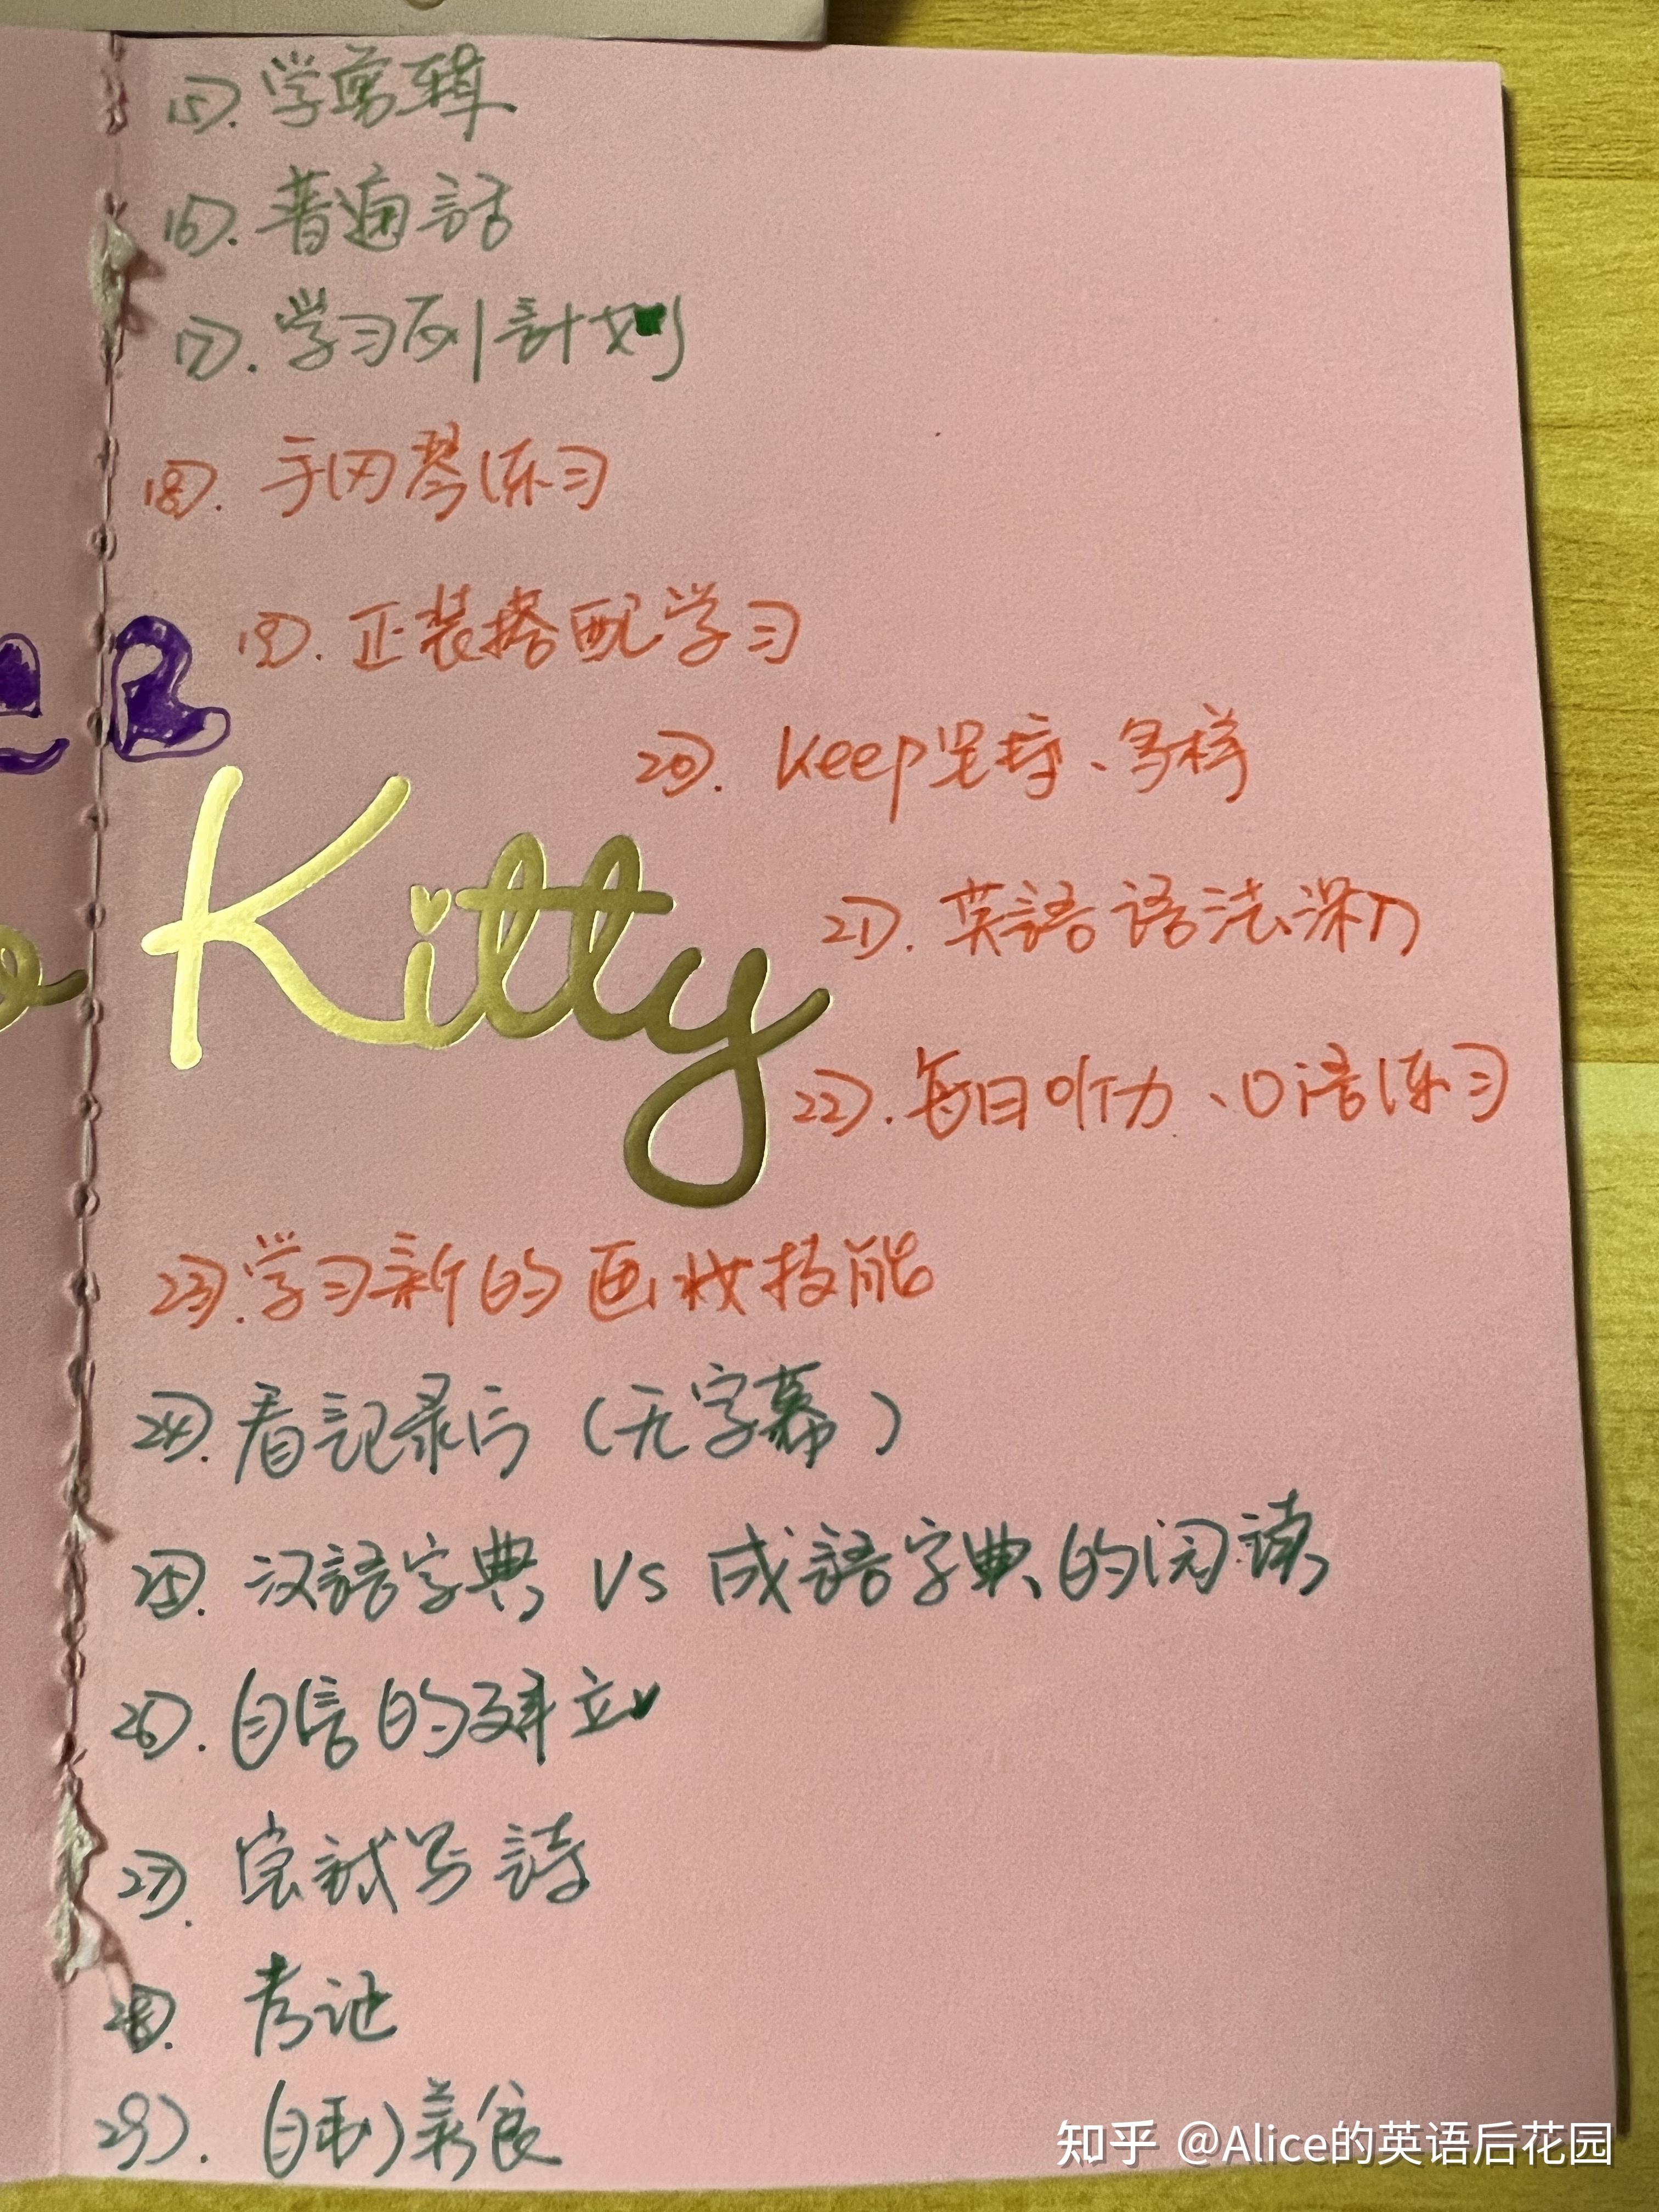 15). 学剪辑
16). 普通話
17). 学习列計划
18). 手风琴练习
19). 正装搭配学习
20). Keep坚持、多样
Kitty
21). 英語語法深入
22). 每日听力、口语练习
23). 学习新的画妆技能
24). 看記录片（无字幕）
25). 汉語字典 Vs 成語字典的阅读
26). 自信的建立
27). 尝試写詩
28). 考证
29). 自制美食
知乎 @Alice的英语后花园